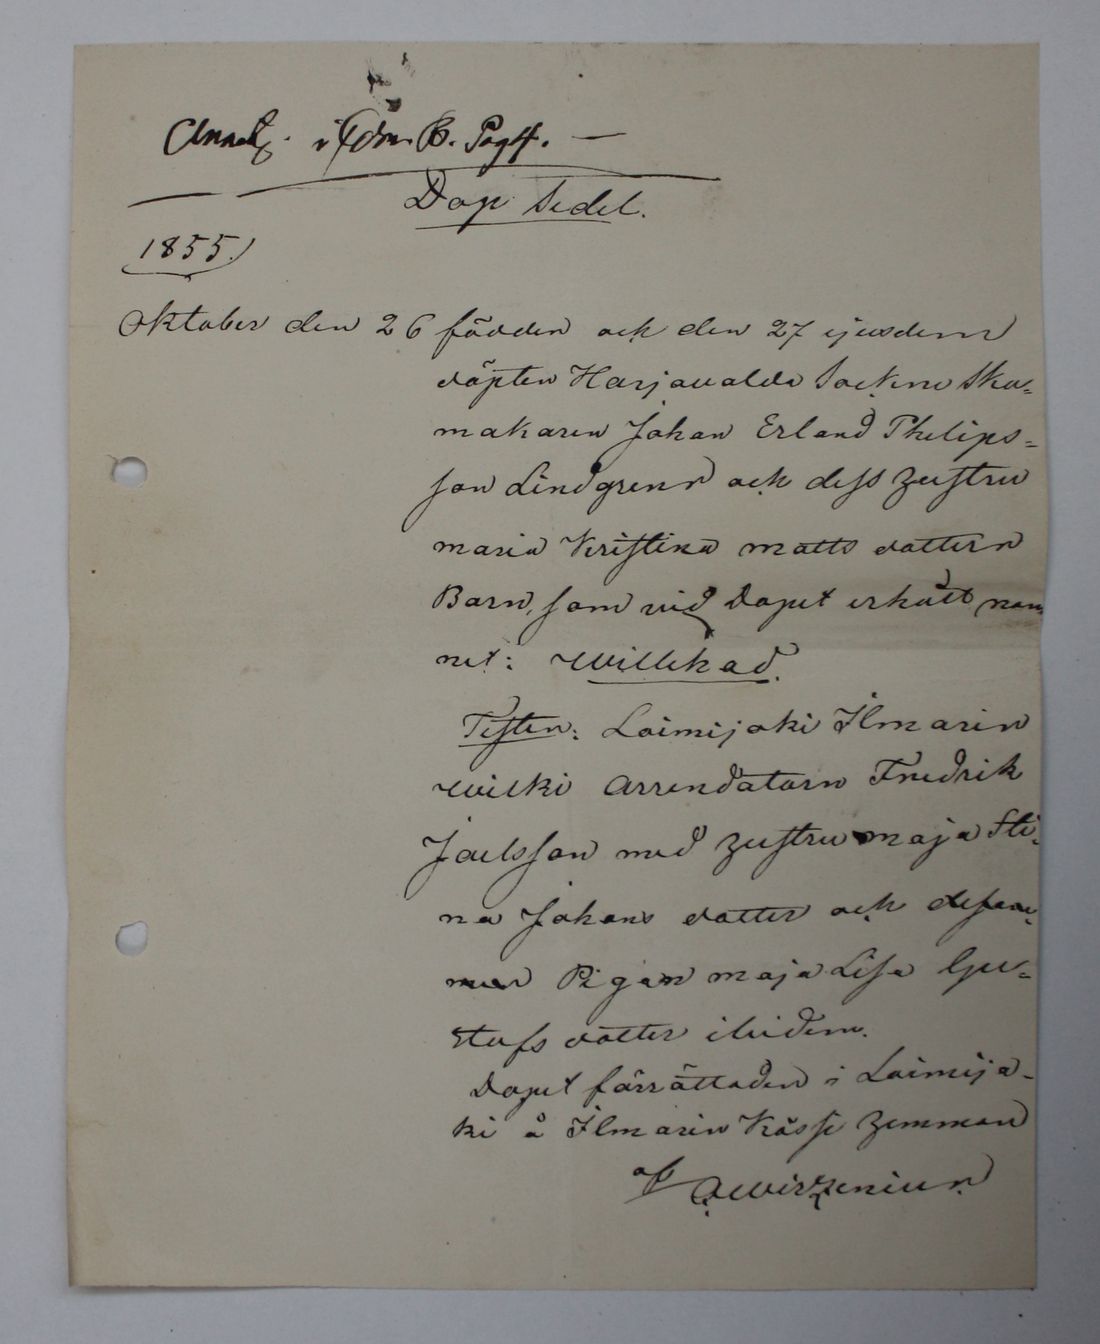 Dop Sedel.
1855.
Oktober den 26 födden och den 27 ejusdem
döpten Harjavalda Sockens Sko-
makaren Johan Erland Philips-
son Lindgrens och dess Hustru
Maria Kristina Matts dotters
Barn, som vid Dopet erhållt nam
net: Willehad.
Testen: Loimijoki Ilmarin
Wilki Arrendatorn Fredrik
Joelsson med Hustru Maja Sti-
na Johans dotter och dess
Pigan Maja Lisa Gu-
stafs dotter ibidem.
Dopet förrättaden i Loimijo-
ki å Ilmarin Kössi Hemman
af